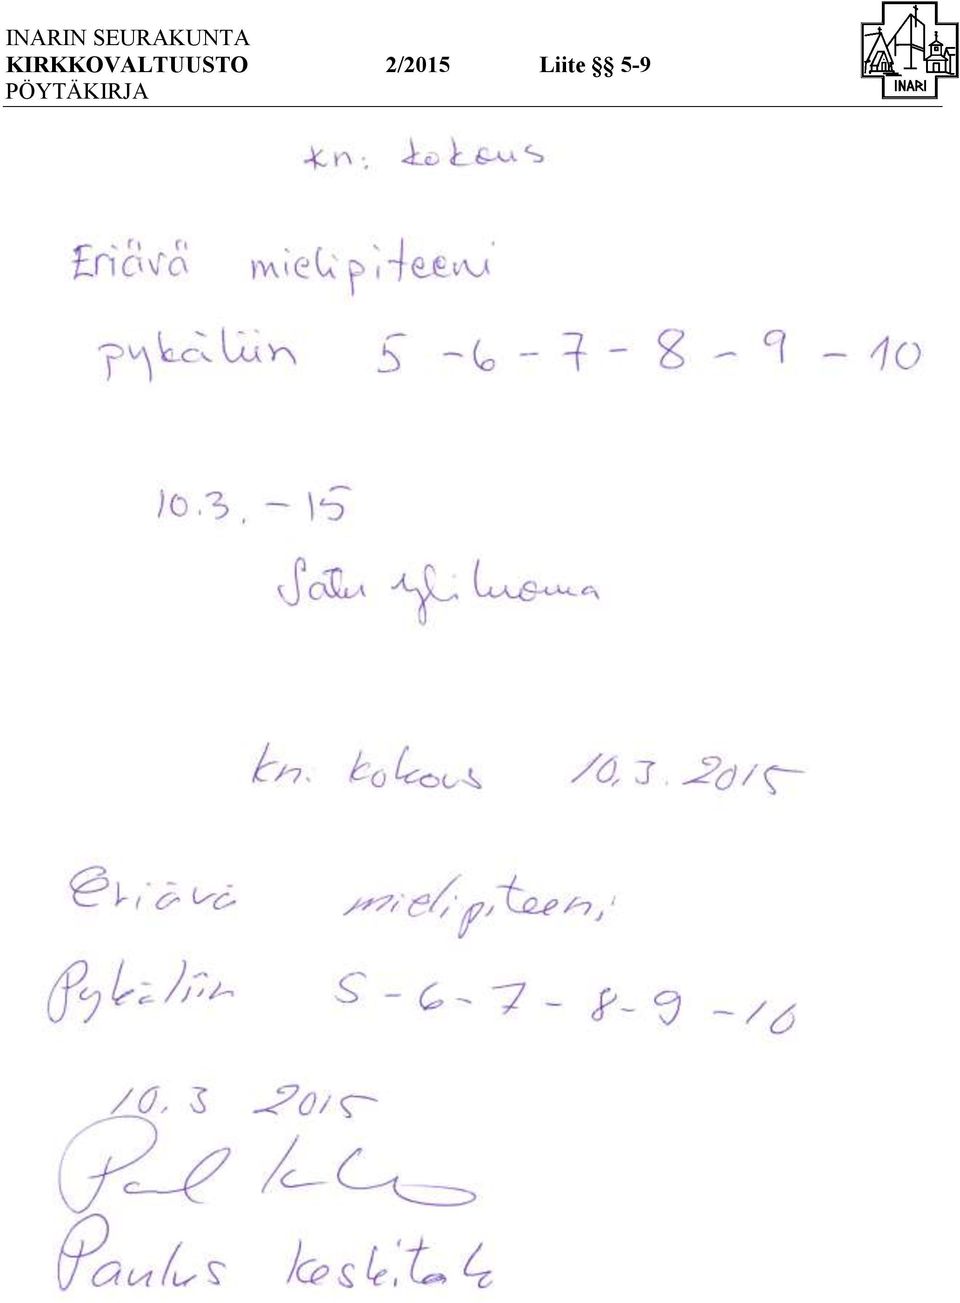 INARIN SEURAKUNTA
KIRKKOVALTUUSTO 2/2015 Liite §§ 5-9
PÖYTÄKIRJA
INARI
kn. kokous
Eriävä mielipiteeni
pykäliin 5 -6 - 7 - 8 - 9 - 10
10.3. - 15
Satu yliluoma
kn. kokous 10.3. 2015
Eriävä mielipiteeni
Pykäliin 5 - 6 - 7 - 8 - 9 - 10
10.3 2015
Paulus Keskitalo